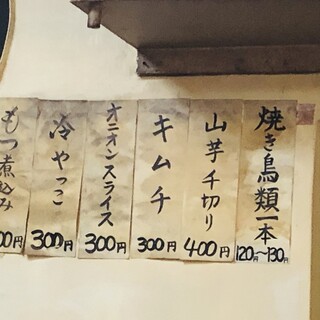 焼き鳥類一本
120円~130円
山芋千切り
400円
キムチ
300円
オニオンスライス
300円
冷やっこ
300円
もつ煮込み
00円